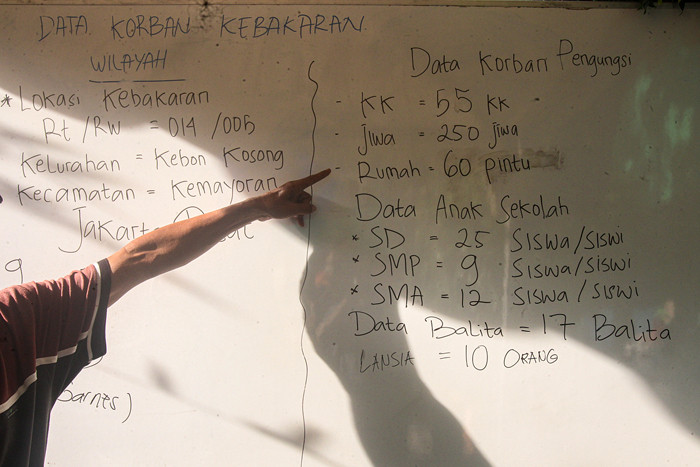 DATA KORBAN KEBAKARAN
WILAYAH
* Lokasi Kebakaran
Rt / RW = 014 / 005
Kelurahan = Kebon Kosong
Kecamatan = Kemayoran
Jakarta
9
barnes)
Data Korban Pengungsi
- KK = 55 KK
- Jiwa = 250 Jiwa
- Rumah = 60 pintu
Data Anak Sekolah
* SD = 25 Siswa/Siswi
* SMP = 9 Siswa/Siswi
* SMA = 12 Siswa / Siswi
Data Balita = 17 Balita
LANSIA = 10 ORANG